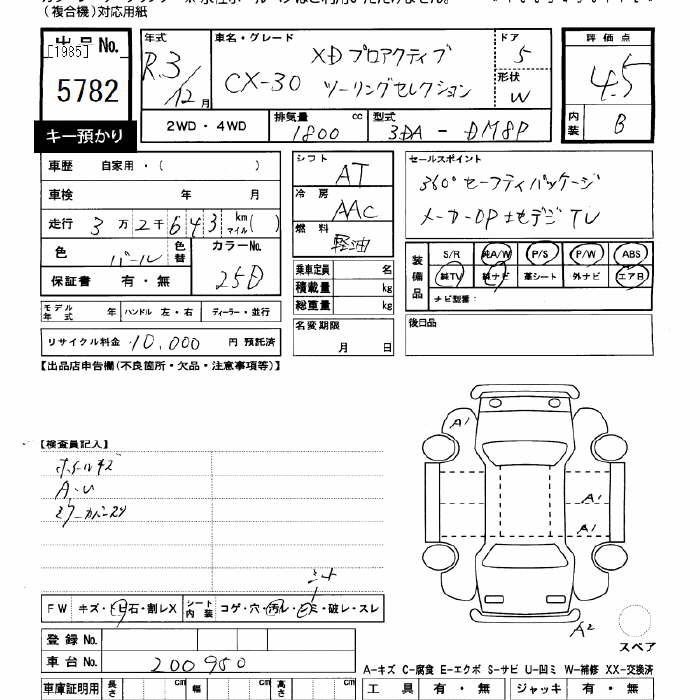 (複合機)対応用紙
出品No.
[1985]
5782
キー預かり
年式 R.3/12月
車名・グレード XD プロアクティブ
CX-30 ツーリングセレクション
ドア 5
形状 W
評価点 4.5
内装 B
2WD・4WD
排気量 1800 cc
型式 3DA - DM8P
車歴 自家用・( )
車検 年 月
走行 3万2千643 km マイル( )
色 パール 色替
カラーNo. 25D
保証書 有・無
シフト AT
冷房 AAC
燃料 軽油
乗車定員 名
積載量 kg
総重量 kg
セールスポイント
360°セーフティパッケージ
メーカーOP 地デジTV
装備品
S/R 純A/W P/S P/W ABS
純TV 純ナビ 革シート 外ナビ エアB
ナビ型番:
モデル年式 年 ハンドル 左・右 ディーラー・並行
名変期限
月 日
後日品
リサイクル料金 10,000 円 預託済
【出品店申告欄(不良箇所・欠品・注意事項等)】
【検査員記入】
ホイールキズ
A・U
ミラーカバースリ
A1
A1
A1
A2
スペア
シート
FW キズ・ヒビ石・割レX
シート内装 コゲ・穴・汚レ・シミ・破レ・スレ
登録No.
車台No. 200950
A-キズ C-腐食 E-エクボ S-サビ U-凹ミ W-補修 XX-交換済
車庫証明用 長さ cm 幅 cm 高さ cm
工具 有・無 ジャッキ 有・無